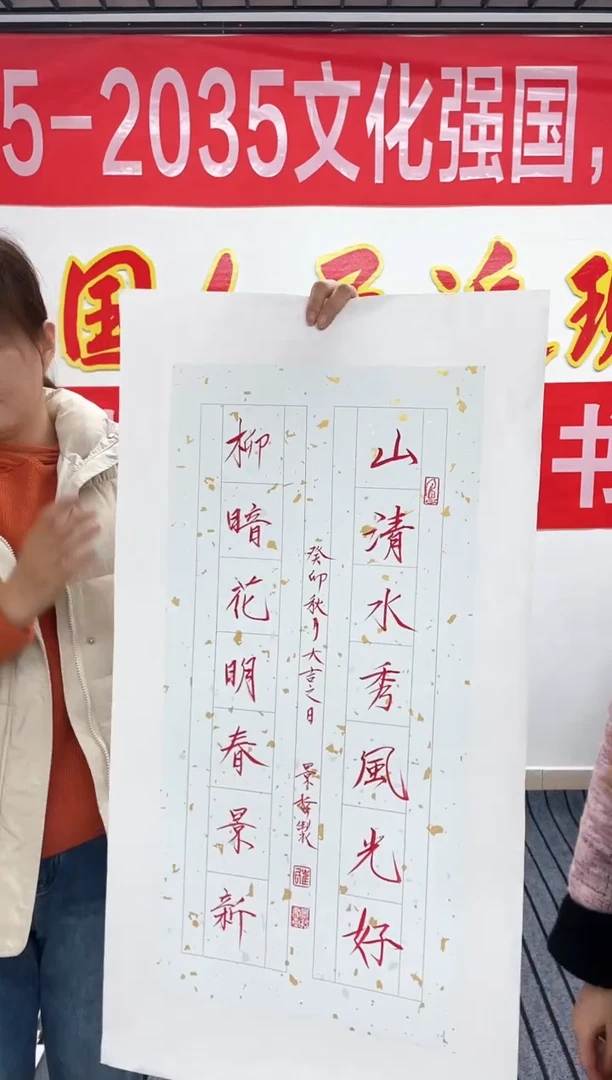 5-2035文化强国，
国
书
山清水秀風光好
柳暗花明春景新
癸卯秋月大吉之日